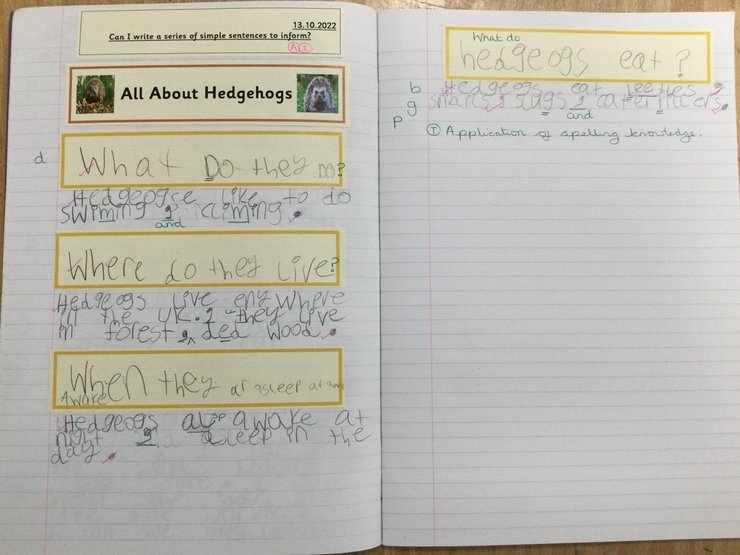 13.10.2022
Can I write a series of simple sentences to inform?
A I
All About Hedgehogs
d
What Do they Do?
Hedgeogse like to do
swiming g climing.
and
Where do they live?
Hedgeogs live enywhere
in the UK. they live
in forest g ded wood.
When they ar asleep ar
Awake
Hedgeogs awake at
night g asleep in the
day.
What do
hedgeogs eat?
b
g
p
Hedgeogs eat leethes g
snails g slugs g
and
I Application of spelling knowledge.